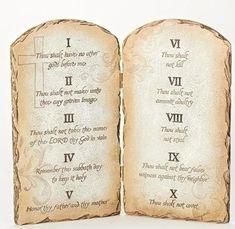 I
Thou shalt have no other
gods before me
II
Thou shalt not make unto
thee any graven images
III
Thou shalt not take the name
of the LORD thy God in vain
IV
Remember the sabbath day
to keep it holy
V
Honor thy father and thy mother
VI
Thou shalt
not kill
VII
Thou shalt not
commit adultery
VIII
Thou shalt
not steal
IX
Thou shalt not bear false
witness against thy neighbor
X
Thou shalt not covet